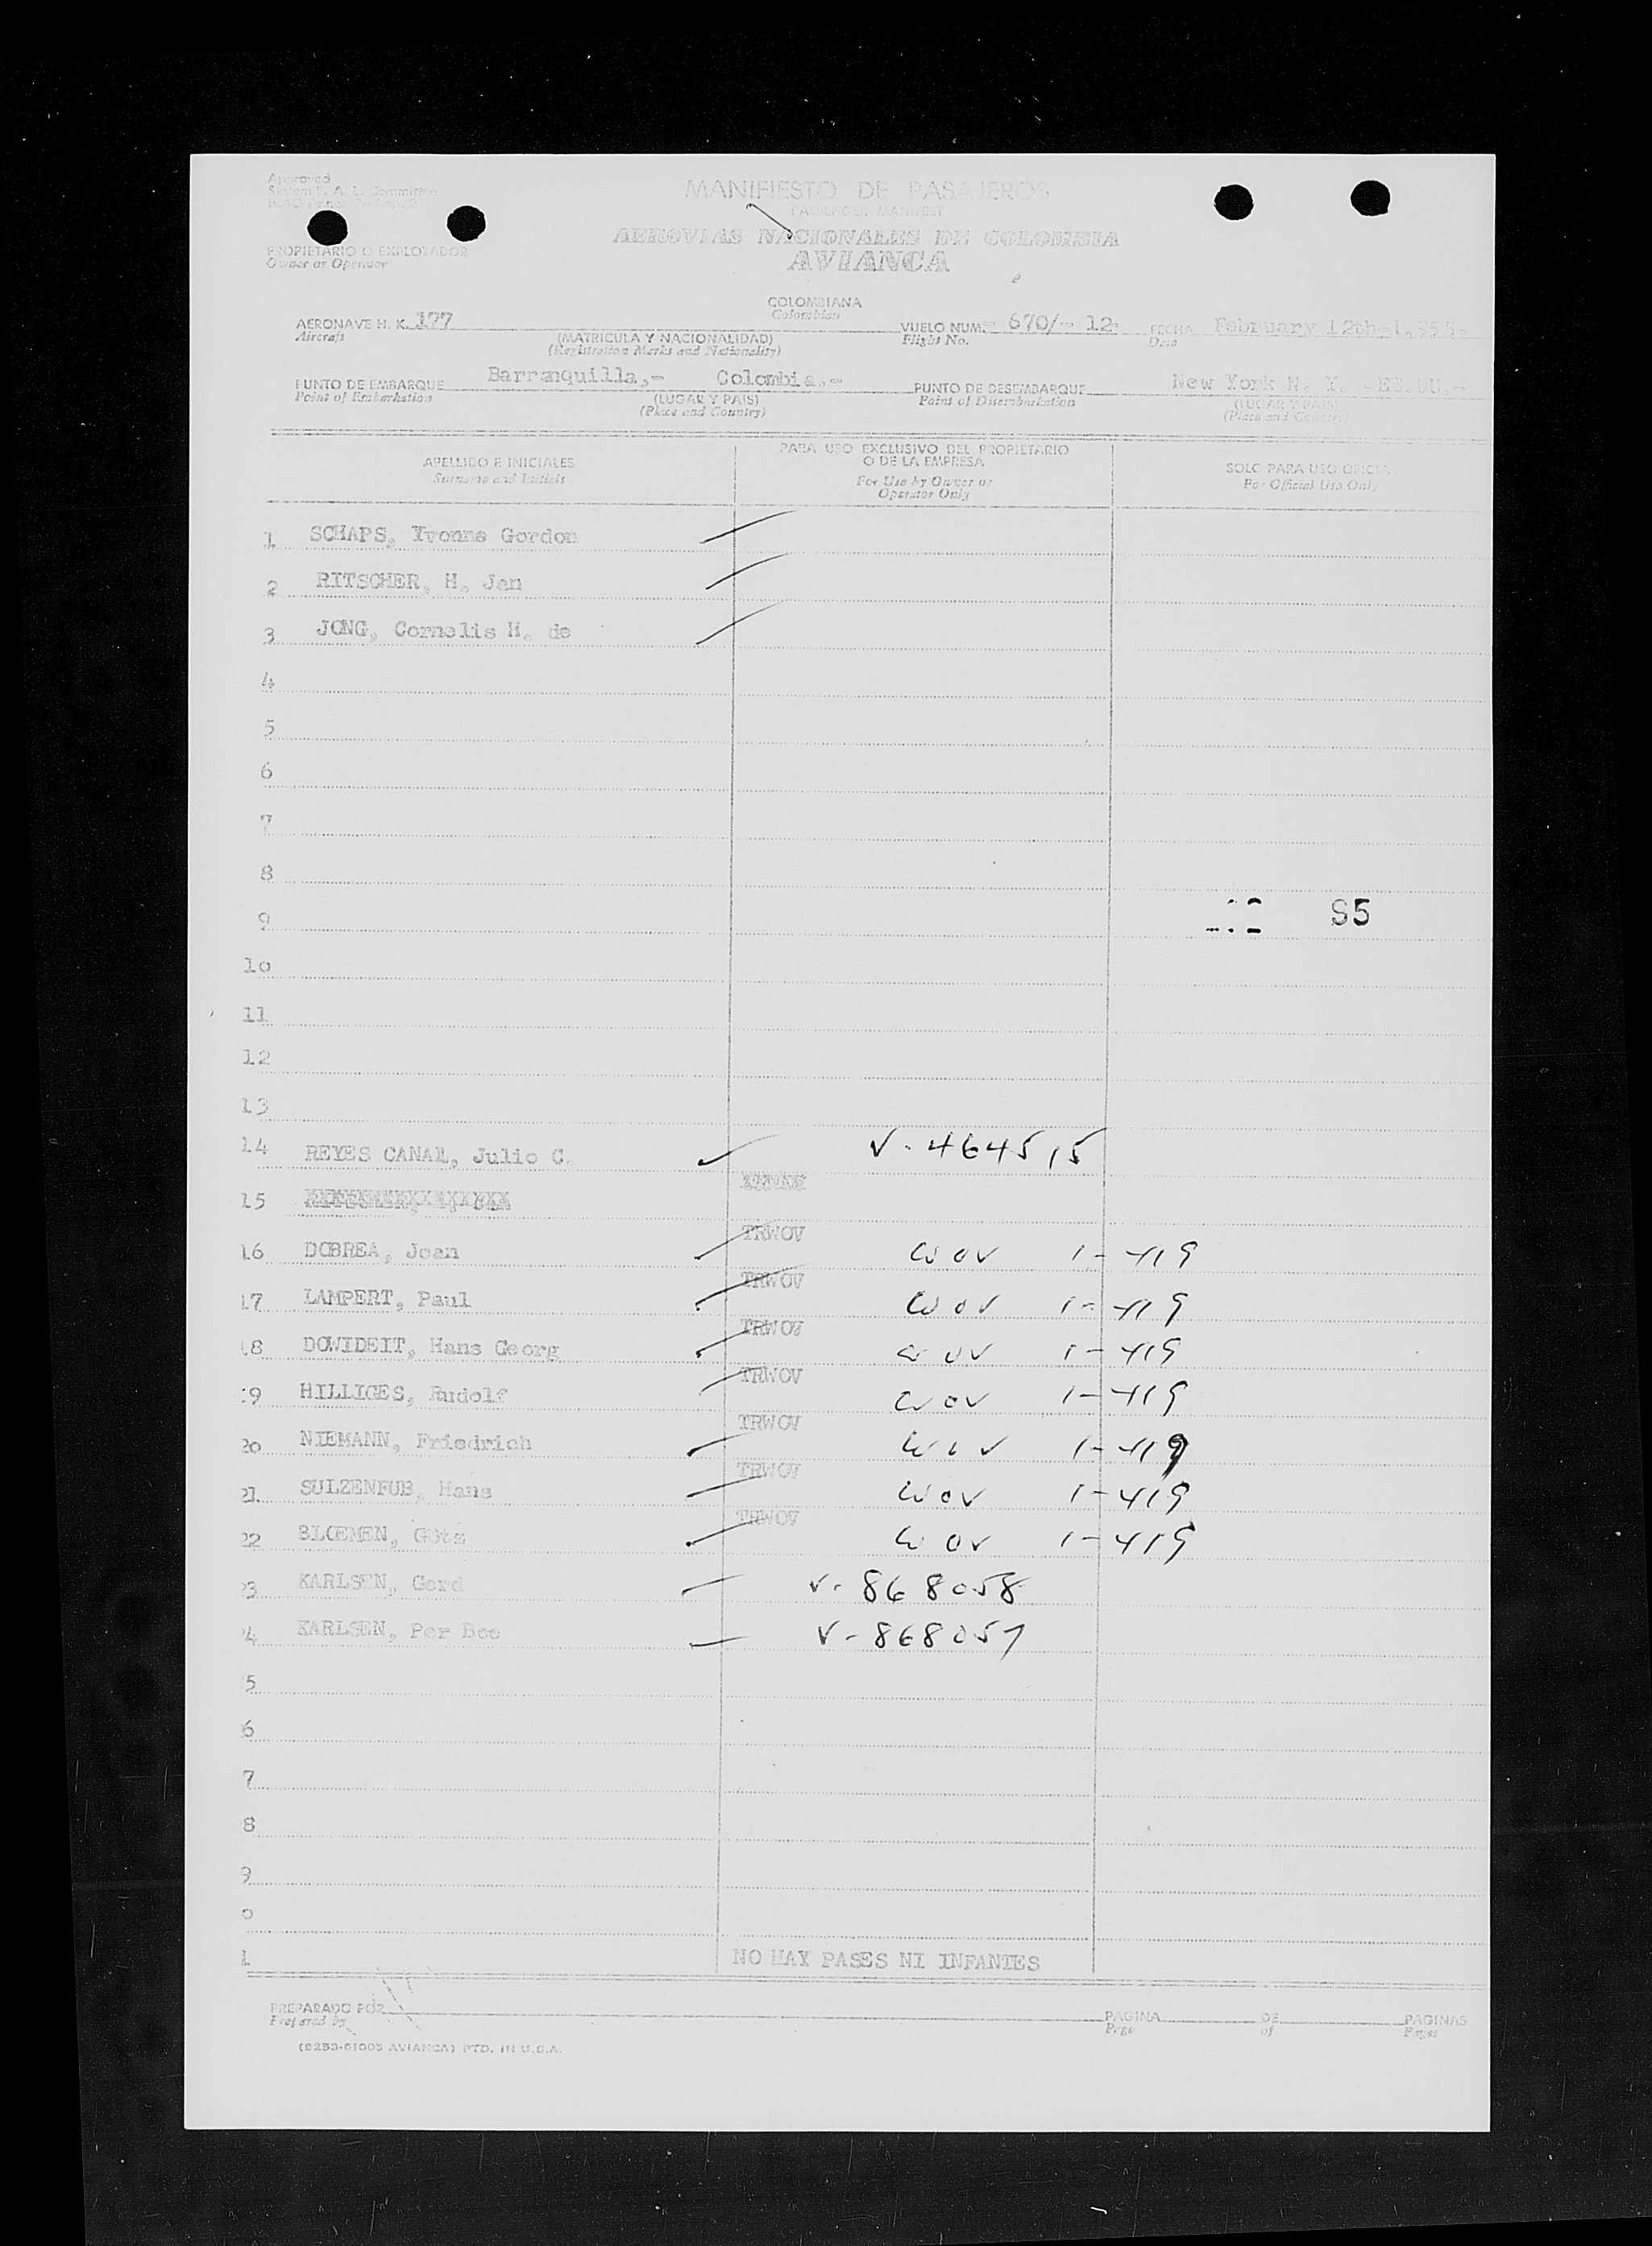 Approved
MANIFIESTO DE PASAJEROS
PASSENGER MANIFEST
AEROVIAS NACIONALES DE COLOMBIA
AVIANCA
PROPIETARIO O EXPLOTADOR
Owner or Operator
COLOMBIANA
Colombian
AERONAVE H. K. 177 VUELO NUM.- 670/- 12- FECHA February 12th-1.955-
Aircraft (MATRICULA Y NACIONALIDAD) Flight No. Date
(Registration Marks and Nationality)
PUNTO DE EMBARQUE Barranquilla,- Colombia.- PUNTO DE DESEMBARQUE New York N. Y. -EE.UU.-
Point of Embarkation (LUGAR Y PAIS) Point of Disembarkation (LUGAR Y PAIS)
(Place and Country) (Place and Country)
APELLIDO E INICIALES PARA USO EXCLUSIVO DEL PROPIETARIO O DE LA EMPRESA SOLO PARA USO OFICIAL
Surname and Initials For Use by Owner or Operator Only For Official Use Only
1 SCHAPS, Yvonne Gordon
2 RITSCHER, H. Jan
3 JONG, Cornelis H. de
4
5
6
7
8
9 S5
10
11
12
13
14 REYES CANAL, Julio C. V-464515
15
16 DOBREA, Joan TRWOV WOV 1-419
17 LAMPERT, Paul TRWOV WOV 1-419
18 DOWIDEIT, Hans Georg TRWOV WOV 1-419
19 HILLIGES, Rudolf TRWOV WOV 1-419
20 NIEMANN, Friedrich TRWOV WOV 1-419
21 SULZENFUB, Hans TRWOV WOV 1-419
22 BLOEMEN, Götz TRWOV WOV 1-419
23 KARLSEN, Gerd V-868058
24 KARLSEN, Per Boe V-868057
5
6
7
8
9
0
1 NO HAY PASES NI INFANTES
PREPARADO POR PAGINA DE PAGINAS
Prepared by Page of Pages
(8253-01005 AVIANCA) PTD. IN U.S.A.